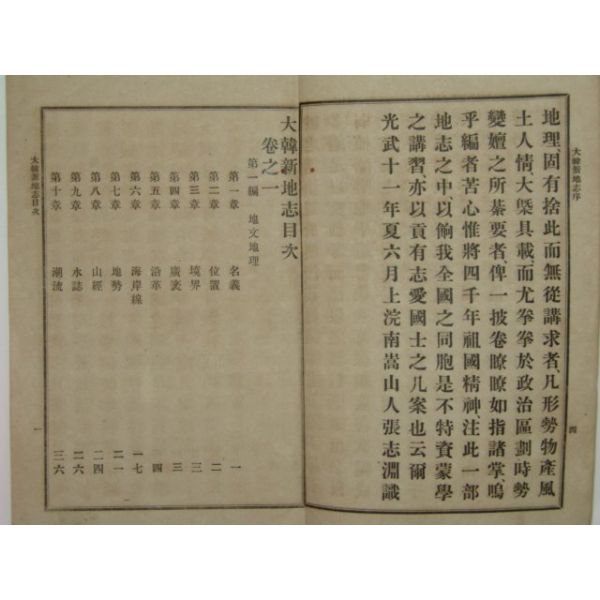 大韓新地志序
地理、固有捨此而無從講求者、凡形勢物產風
土人情大槩具載、而尤拳拳於政治區劃時勢
變嬗之所綦要者、俾一披卷瞭瞭如指諸掌、嗚
乎編者苦心惟將四千年祖國精神、注此一部
地志之中、以餉我全國之同胞是不特資蒙學
之講習、亦以貢有志愛國士之几案也云爾
光武十一年夏六月上浣南嵩山人張志淵識
四
大韓新地志目次
卷之一
第一編 地文地理
第一章 名義 一
第二章 位置 二
第三章 境界 三
第四章 廣袤 三
第五章 沿革 四
第六章 海岸線 一七
第七章 地勢 二一
第八章 山經 二四
第九章 水誌 二六
第十章 潮流 三六
大韓新地志目次
一